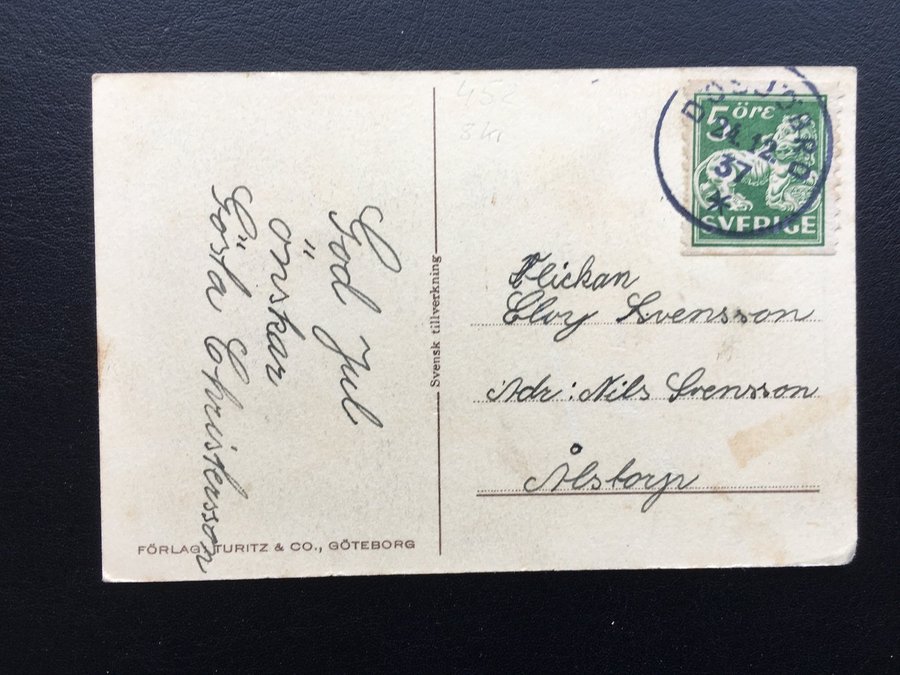 God Jul
önskar
Gösta Christersson
FÖRLAG TURITZ & CO., GÖTEBORG
Svensk tillverkning
45
3 kr
5 ÖRE
SVERIGE
24.12
37
Flickan
Elvy Svensson
Adr: Nils Svensson
Ålstorp